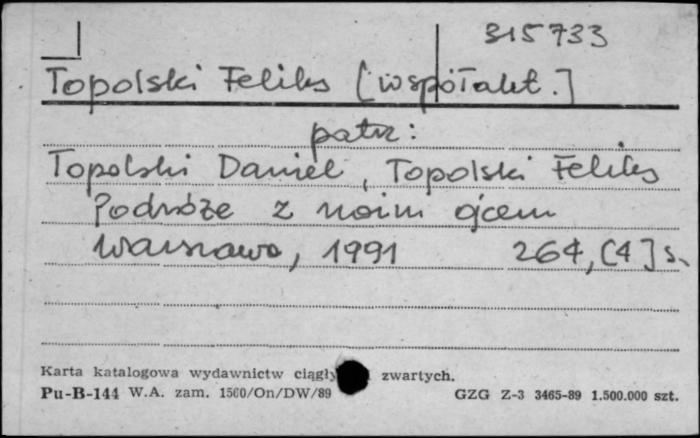 315733
Topolski Feliks [współaut.]
patrz:
Topolski Daniel, Topolski Feliks
Podróże z moim ojcem
Warszawa, 1991 264, [4] s.
Karta katalogowa wydawnictw zwartych.
Pu-B-144 W.A. zam. 1560/On/DW/89 GZG Z-3 3465-89 1.500.000 szt.